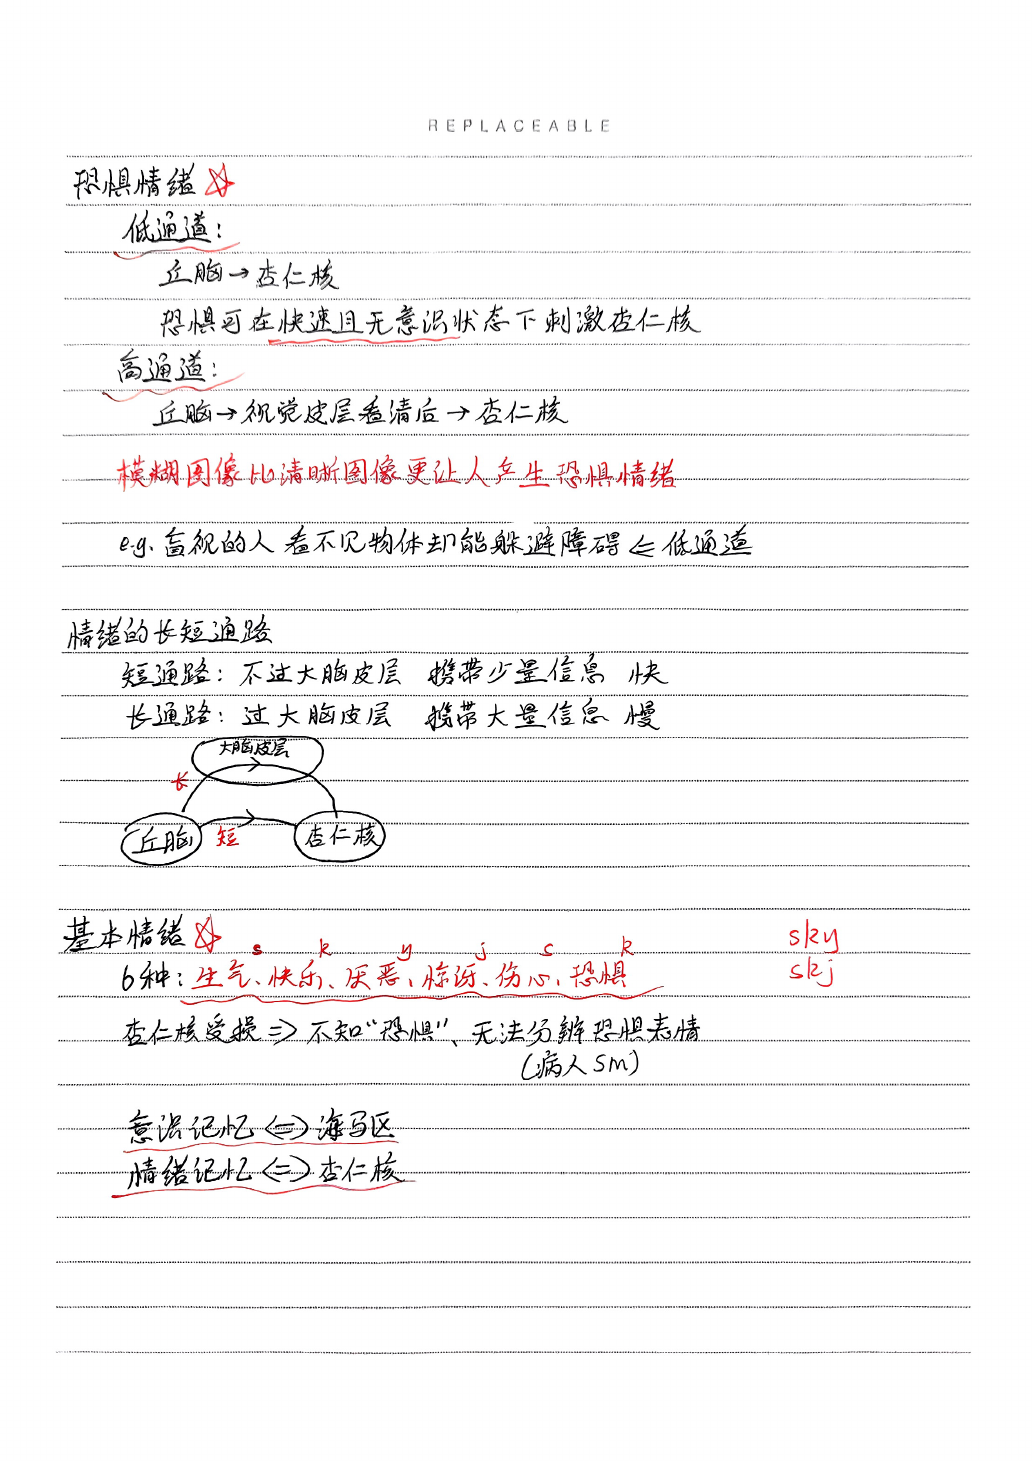 REPLACEABLE
恐惧情绪☆
低通道：
丘脑→杏仁核
恐惧可在快速且无意识状态下刺激杏仁核
高通道：
丘脑→视觉皮层看清后→杏仁核
模糊图像比清晰图像更让人产生恐惧情绪
e.g. 盲视的人看不见物体却能躲避障碍⇐低通道
情绪的长短通路
短通路：不过大脑皮层 携带少量信息 快
长通路：过大脑皮层 携带大量信息 慢
大脑皮层
长
丘脑 短 杏仁核
基本情绪☆
s k y j s k sky
6种：生气、快乐、厌恶、惊讶、伤心、恐惧 skj
杏仁核受损⇒不知“恐惧”、无法分辨恐惧表情
(病人SM)
意识记忆⇔海马区
情绪记忆⇔杏仁核